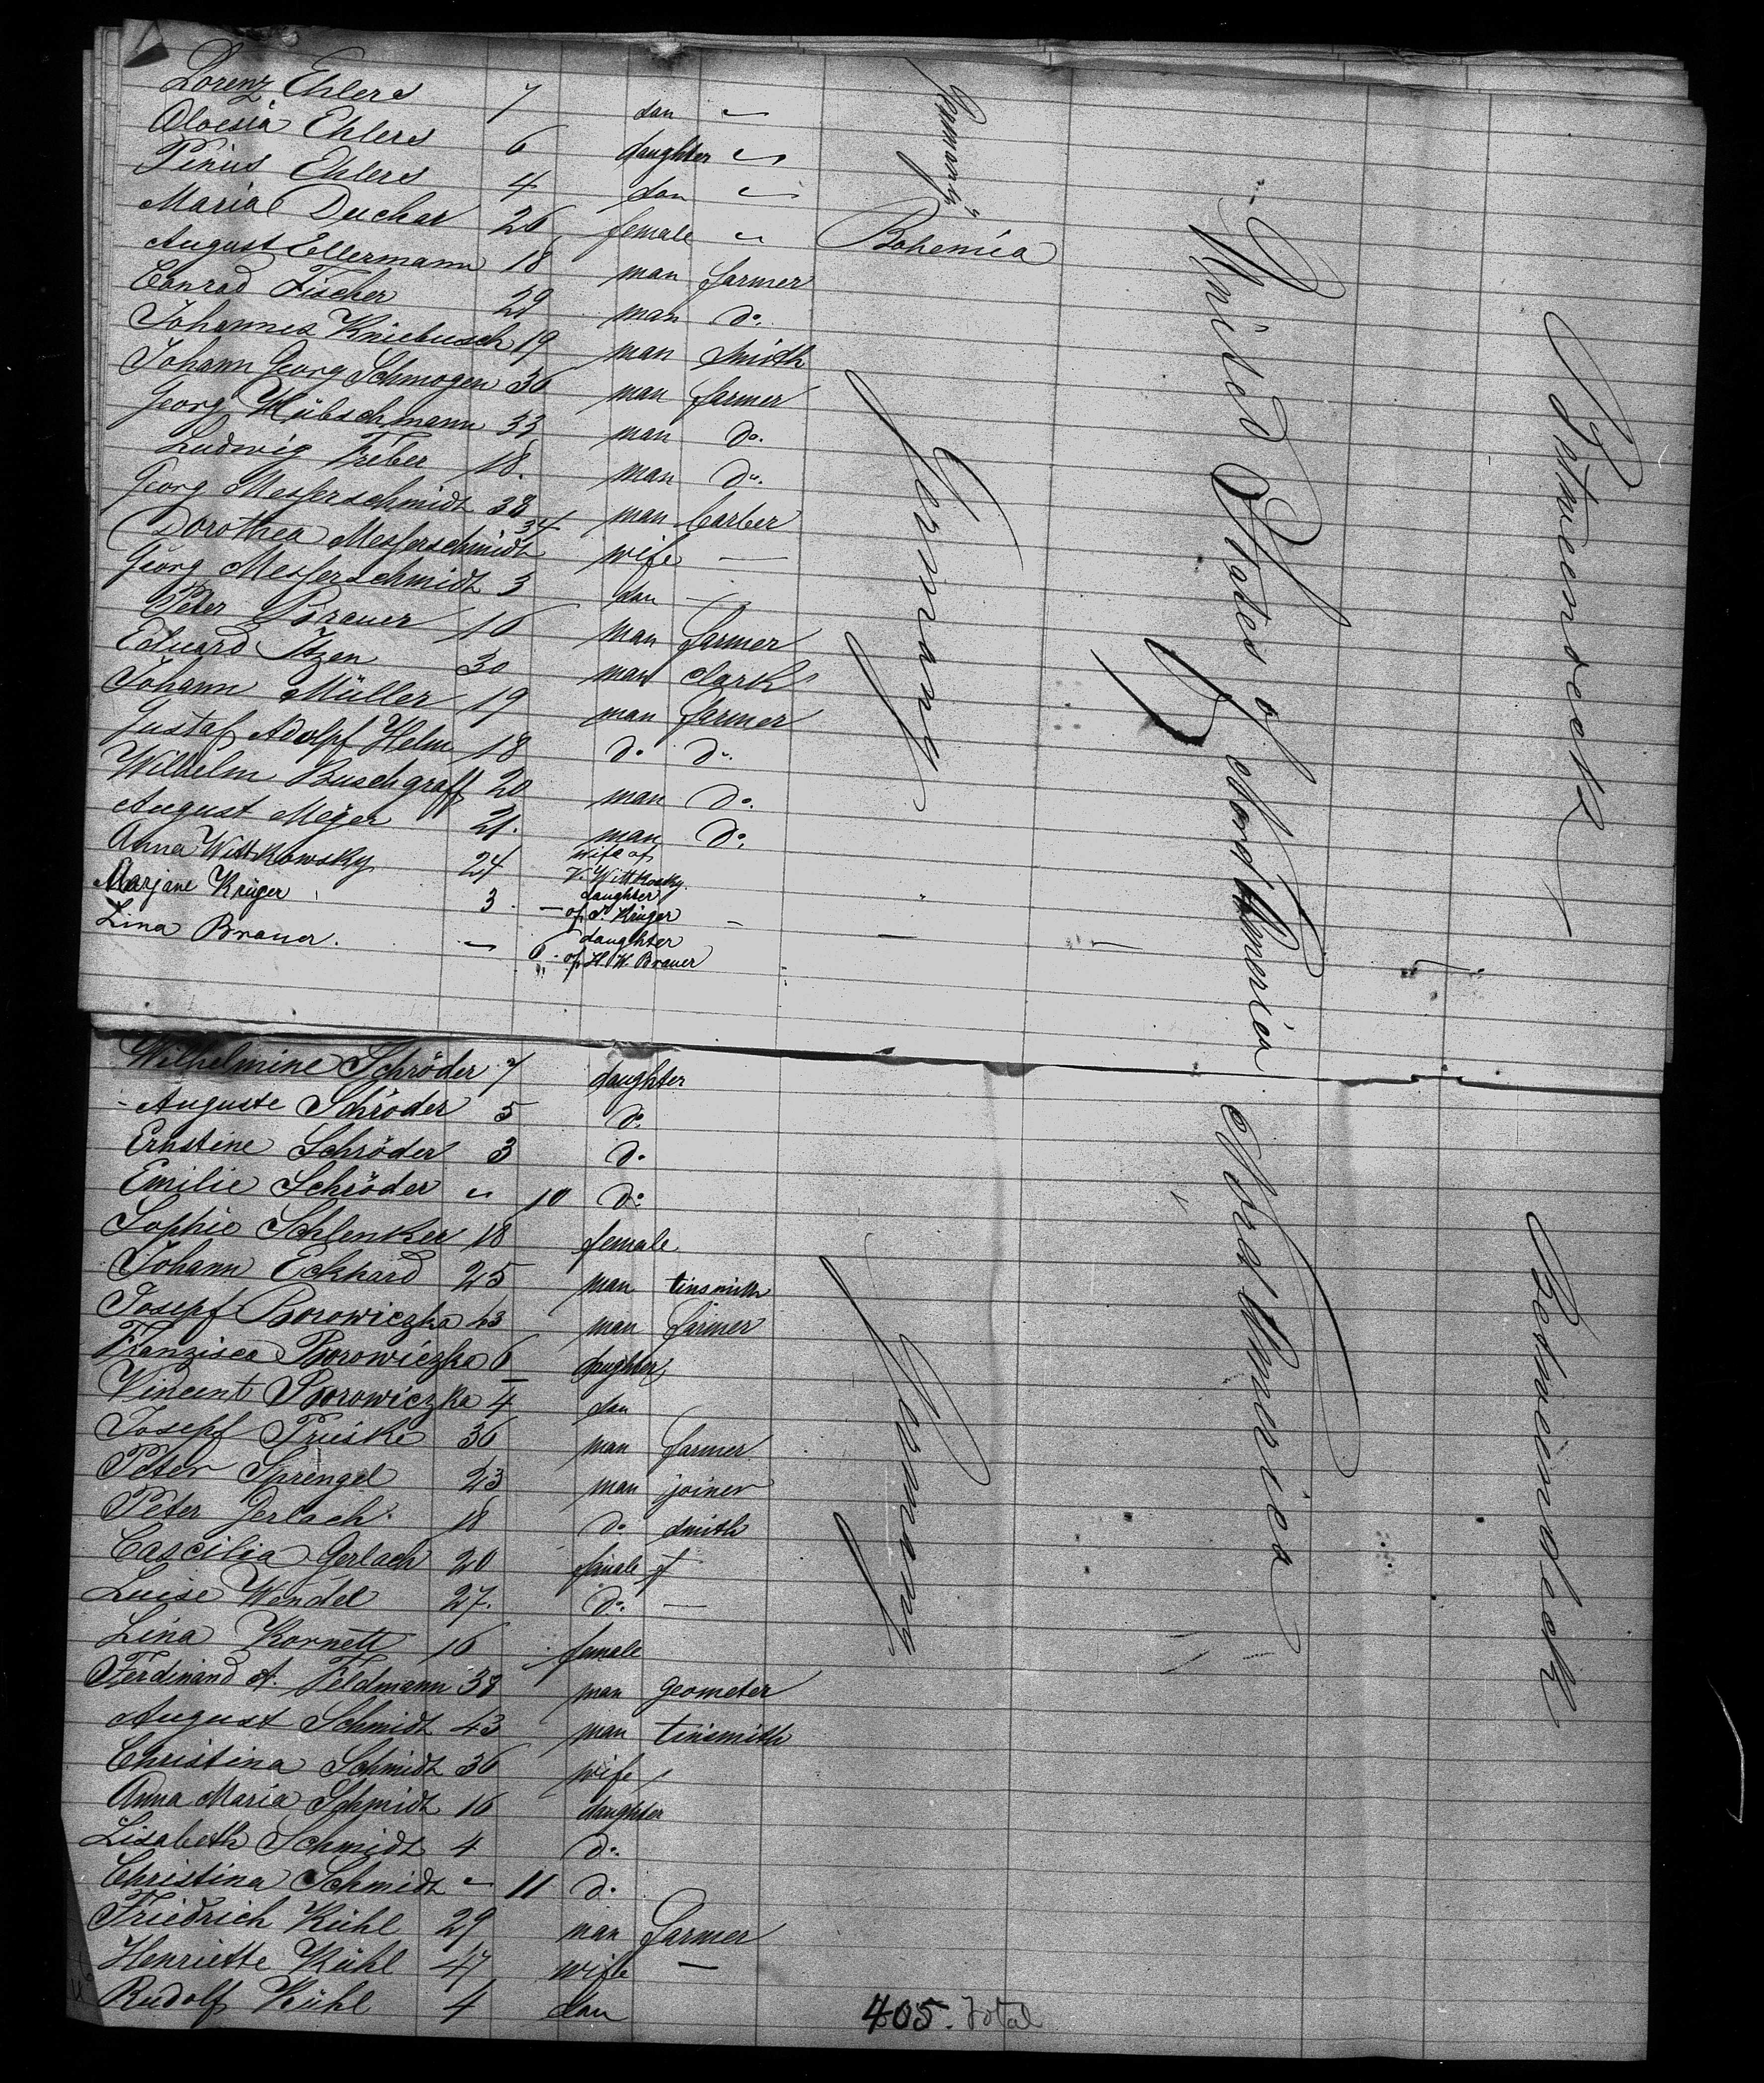 Lorenz Ehlers 7 son "
Aloesia Ehlers 6 daughter "
Pinus Ehlers 4 son "
Germany
Maria Duchar 26 female " Bohemia
August Ellermann 18 man farmer
Conrad Fischer 29 man do.
Johannes Kniebusch 19 man smith
Johann Georg Schmogen 36 man farmer
Georg Hübschmann 33 man do.
Ludwig Treber 18. man do.
Georg Messerschmidt 38 man barber
Dorothea Messerschmidt 34 wife —
Georg Messerschmidt 3 son —
Peter Brauer 16 man farmer
Eduard Itzen 30 man clark
Johann Müller 19 man farmer
Gustaf Adolpf Helm 18 do. do.
Wilhelm Buschgraff 20 man do.
August Meÿer 21. man do.
Anna Wittkowsky 24 wife of
V. Wittkosky.
Marjane Krüger 3. — daughter
of J. Krüger —
Lina Brauer. — 6. daughter
of H. W. Brauer
Germany
United States of Nord America
Between deck
Wilhelmine Schröder 7 daughter
Auguste Schröder 5 do.
Ernstine Schröder 3 do.
Emilie Schröder " 10 do.
Sophie Schlenker 18 female
Johann Eckhard 25 man tinsmith
Josepf Borowiczka 43 man farmer
Franzisca Borowiczka 6 daughter
Vincent Borowiczka 4 son
Josepf Prieske 36 man farmer
Peter Sprengel 23 man joiner
Peter Gerlach 18 do. smith
Cascilia Gerlach 20 female
Luise Wendel 27. do. —
Lina Kornett 16 female
Ferdinand A. Feldmann 38 man geometer
August Schmidt 43 man tinsmith
Christina Schmidt 36 wife
Anna Maria Schmidt 16 daughter
Lisabeth Schmidt 4 do.
Christina Schmidt " 11 do.
Friedrich Kühl 29 man farmer
Henriette Kühl 47 wife —
Rudolf Kühl 4 son
Germany
Nord America
Between deck
405. Total